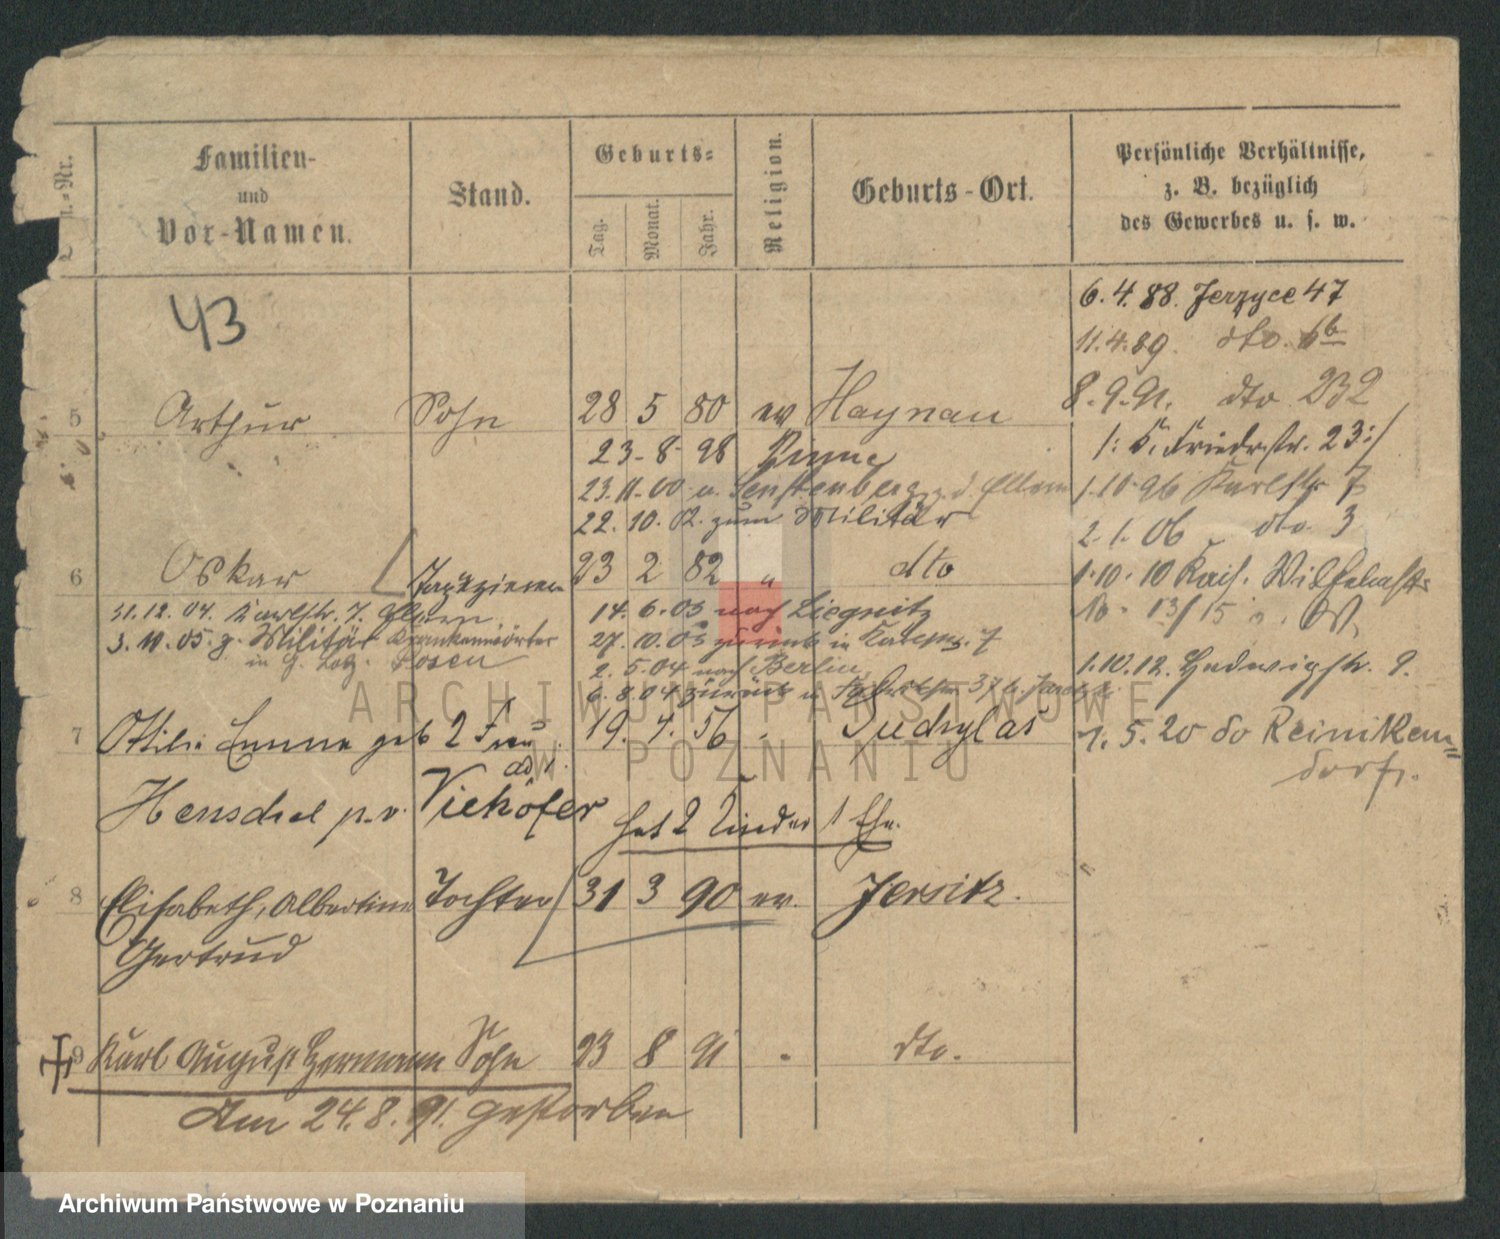 Familien-
und
Vor-Namen.
Stand.
Geburts-
Tag.
Monat.
Jahr.
Religion.
Geburts-Ort.
Persönliche Verhältnisse,
z. B. bezüglich
des Gewerbes u. s. w.
43
6.4.88. Jerzyce 47
11.4.89. dto. 6b
8.9.91. dto 232
5 Arthur Sohn 28 5 80 ev Haynau
1: K. Friedr. str. 23:/
23-8-98 Pinne
23.11.00 u. Senftenberg z. d. Eltern
1.10.96 Karlstr 7
22.10.02. zum Militär
2.1.06 dto 3
6 Oskar Tapezierer 23 2 82 " dto
1.10.10 Kais. Wilhelmstr
31.12.04. Karlstr. 7.
14.6.03 nach Liegnitz
10. 13/15
3.10.05. z. Militär Krankenwärter
27.10.03 zurück in 7
in Posen
2.5.04 nach Berlin
1.10.12. Hedwigstr. 9.
6.8.04 zurück
7 Ottilie Emma geb 2 Frau 19. 4. 56
1.5.20 do Reiniken=
dorf.
Henschel p.v. Viehöfer
hat 2 Kinder 1 Ehe.
8 Elisabeth, Albertine Tochter 31 3 90 ev. Jersitz.
Gertrud
9 Karl August Hermann Sohn 23 8 91 dto.
Am 24.8.91. gestorben
ARCHIWUM PAŃSTWOWE
W POZNANIU
Archiwum Państwowe w Poznaniu